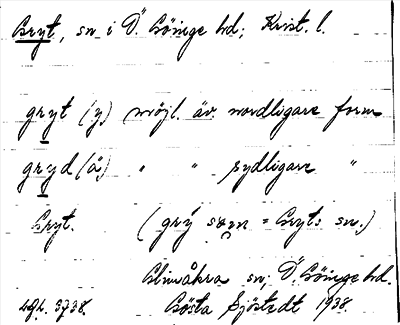 Gryt, sn i Ö. Göinge hd; Krist. l.
gryt (y) möjl. äv. nordligare form
gryd (å) " " sydligare "
Gryt. (grý sɷn = Gryts sn.)
Glimåkra sn, Ö. Göinge hd.
uppt. 3738. Gösta Sjöstedt 1938.